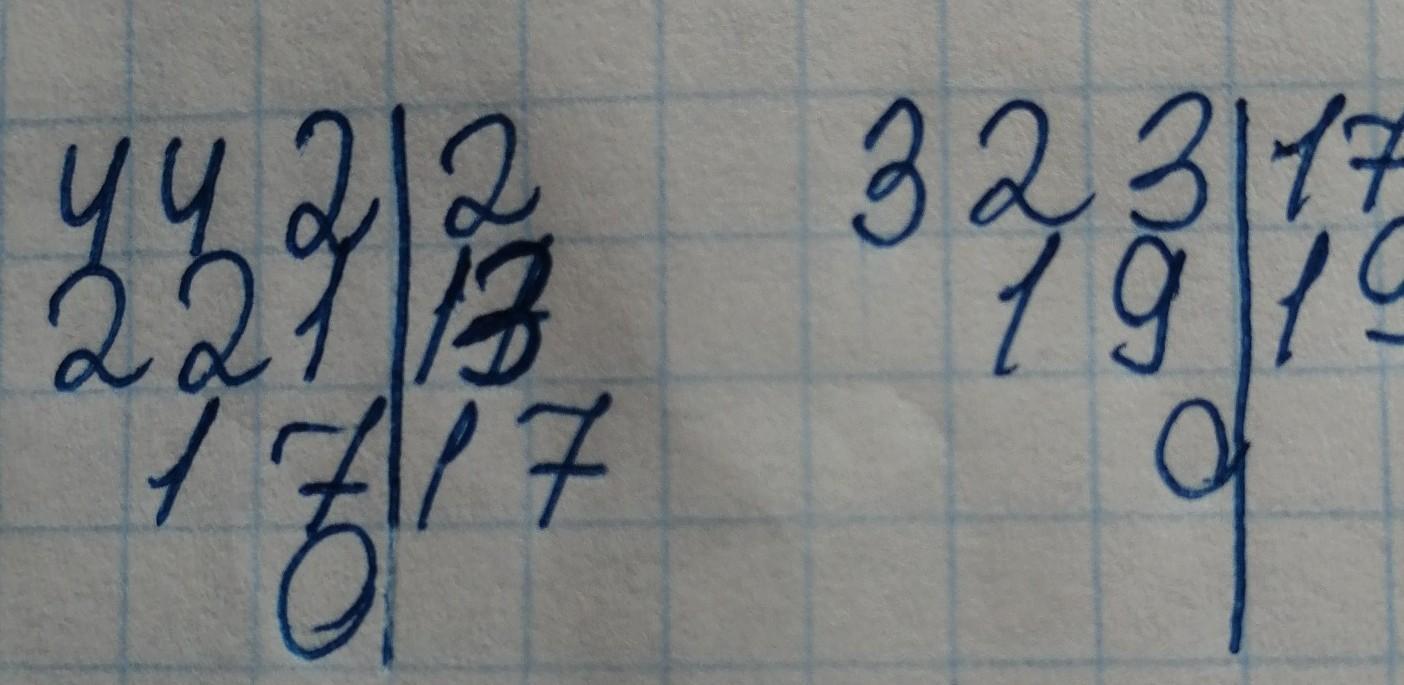 442|2 323|17
221|13 19|19
17|17 0|
0|